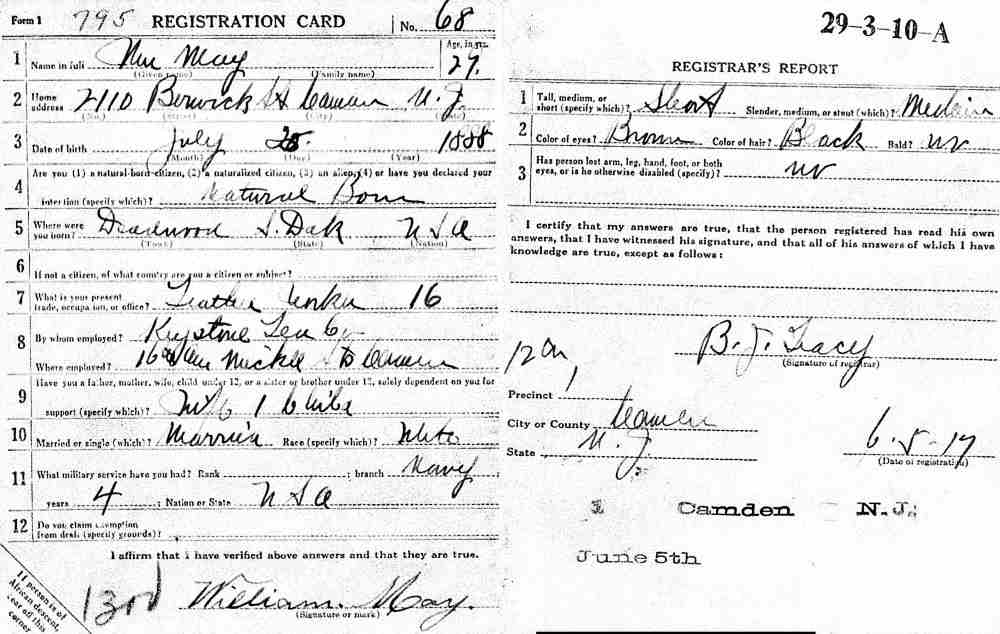 Form 1 795 REGISTRATION CARD No. 68
1 Name in full Wm May Age, in yrs. 29.
(Given name) (Family name)
2 Home address 2110 Berwick St Camden N. J.
(No.) (Street) (City) (State)
3 Date of birth July 25 1888
(Month) (Day) (Year)
4 Are you (1) a natural-born citizen, (2) a naturalized citizen, (3) an alien, (4) or have you declared your
intention (specify which)? Natural Born
5 Where were you born? Deadwood S. Dak U S A
(Town) (State) (Nation)
6 If not a citizen, of what country are you a citizen or subject?
7 What is your present trade, occupation, or office? Leather Worker 16
8 By whom employed? Keystone Lea Co
Where employed? 16 Mickle St Camden
9 Have you a father, mother, wife, child under 12, or a sister or brother under 12, solely dependent on you for
support (specify which)? Wife 1 Child
10 Married or single (which)? Married Race (specify which)? White
11 What military service have you had? Rank ; branch Navy
years 4 ; Nation or State U S A
12 Do you claim exemption from draft (specify grounds)?
I affirm that I have verified above answers and that they are true.
William. May.
(Signature or mark)
If person is of
African descent,
tear off this
corner
29-3-10-A
REGISTRAR'S REPORT
1 Tall, medium, or short (specify which)? Short Slender, medium, or stout (which)? Medium
2 Color of eyes? Brown Color of hair? Black Bald? no
3 Has person lost arm, leg, hand, foot, or both eyes, or is he otherwise disabled (specify)? no
I certify that my answers are true, that the person registered has read his own
answers, that I have witnessed his signature, and that all of his answers of which I have
knowledge are true, except as follows:
B. J. Tracy
(Signature of registrar)
Precinct 1
City or County Camden
State N. J. 6-5-17
(Date of registration)
1 Camden N.J.
June 5th